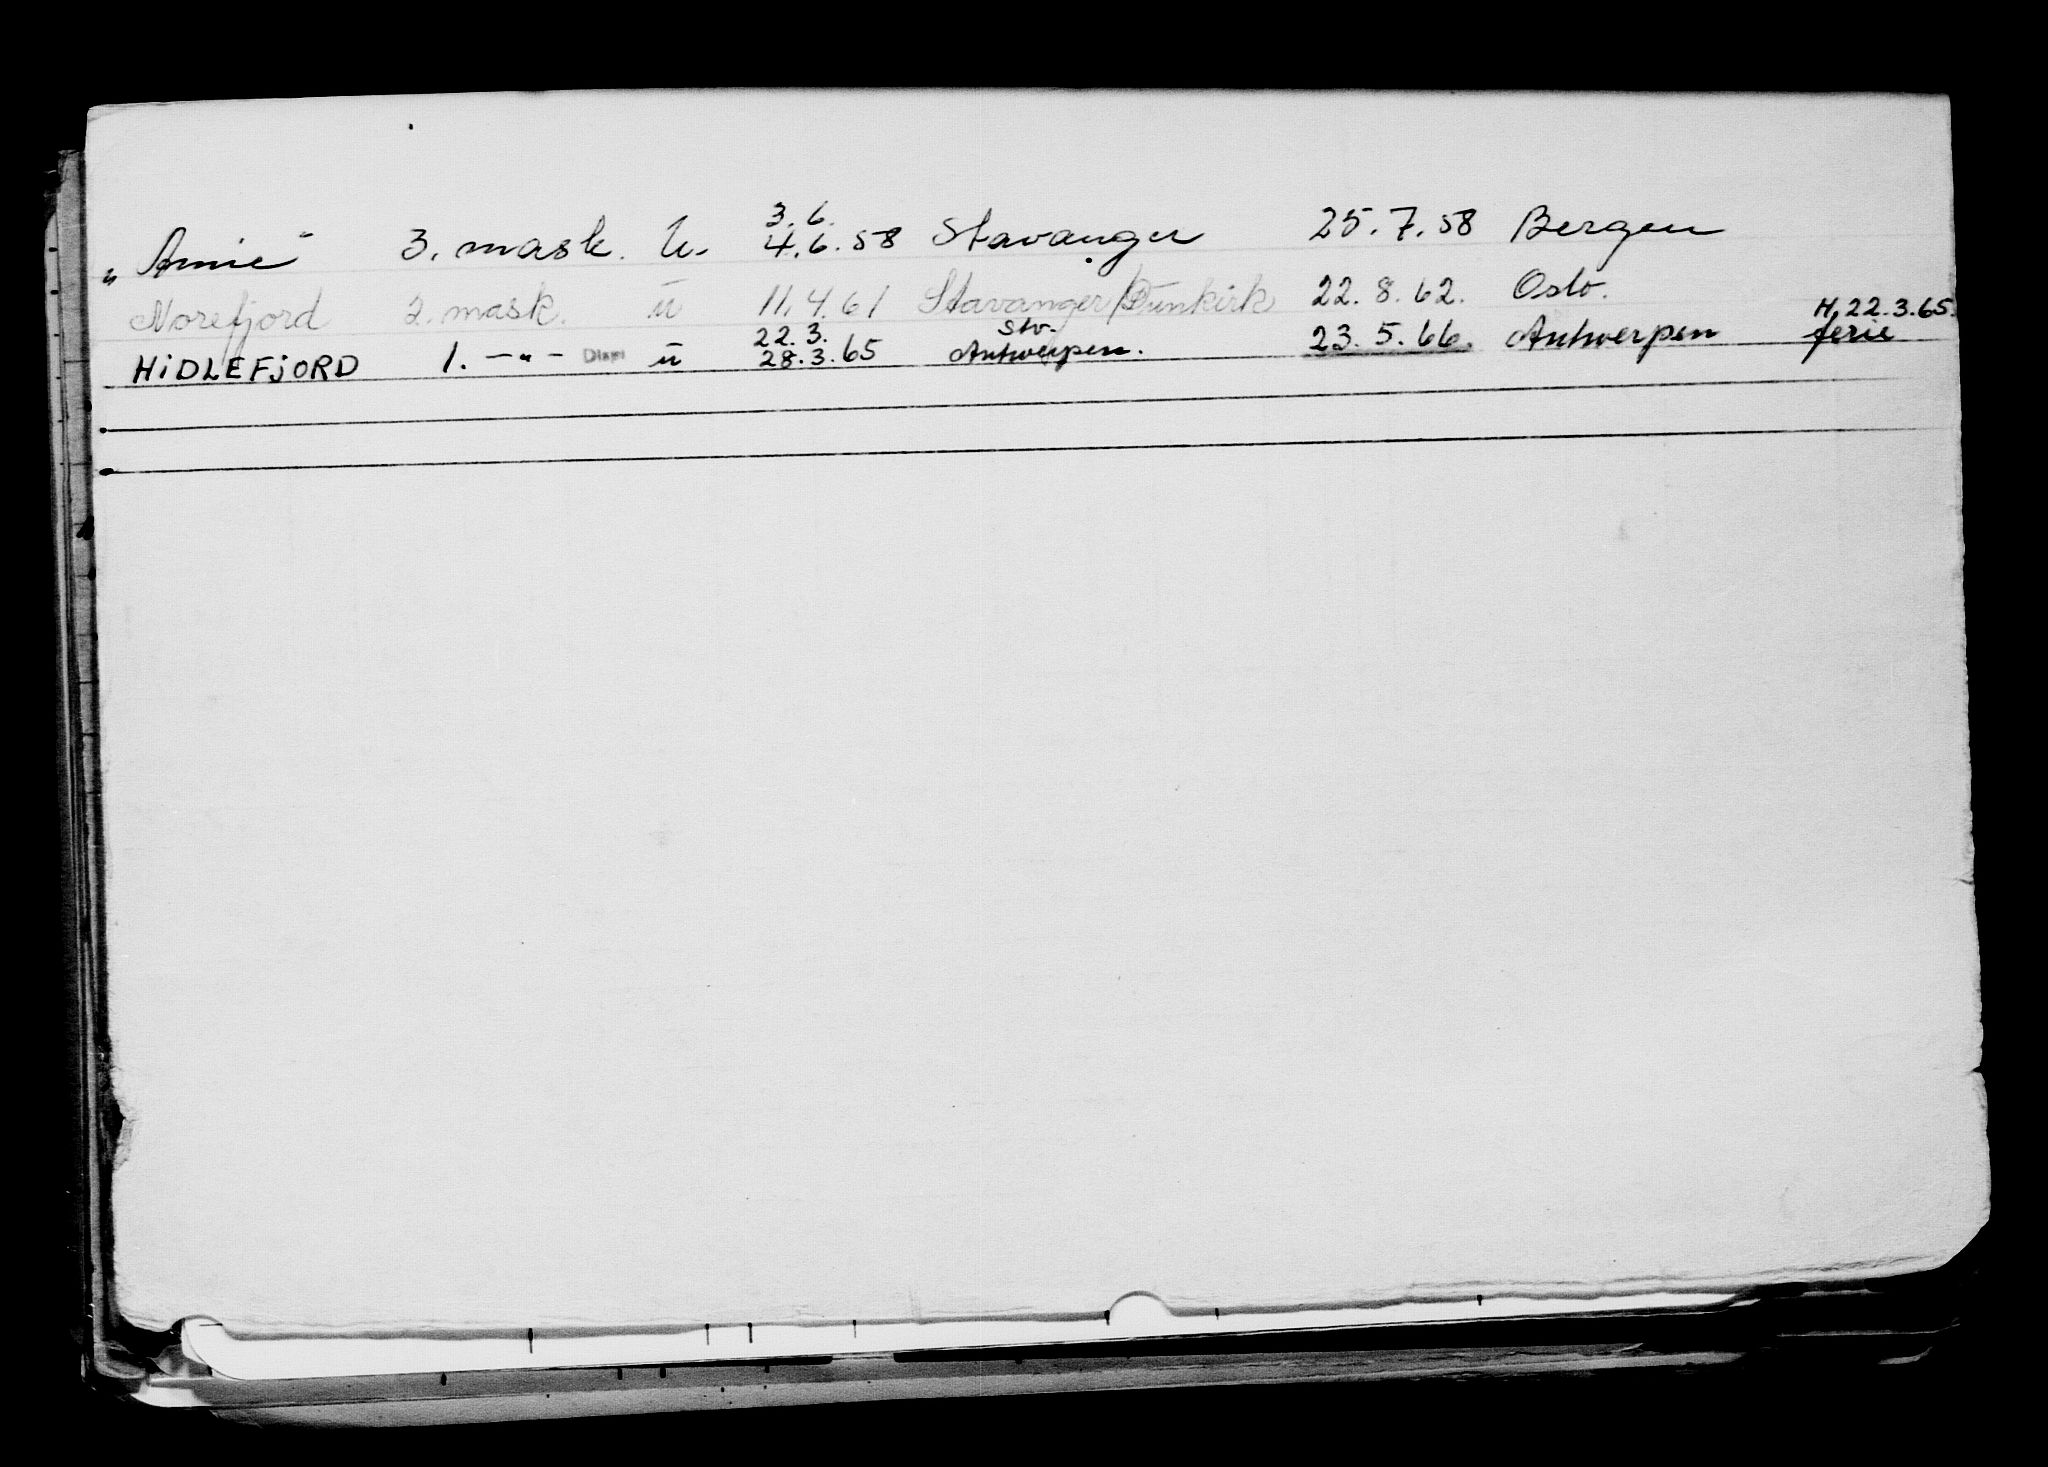 "Anne" 3. mask. U. 3.6. 4.6.58 Stavanger 25.7.58 Bergen
Norefjord 2. mask. u 11.4.61 Stavanger/Dunkirk 22.8.62. Oslo.
HiDLEFjORD 1. -"- u 22.3. 28.3.65 Stv. Antwerpen. 23.5.66. Antwerpen H, 22.3.65. ferie